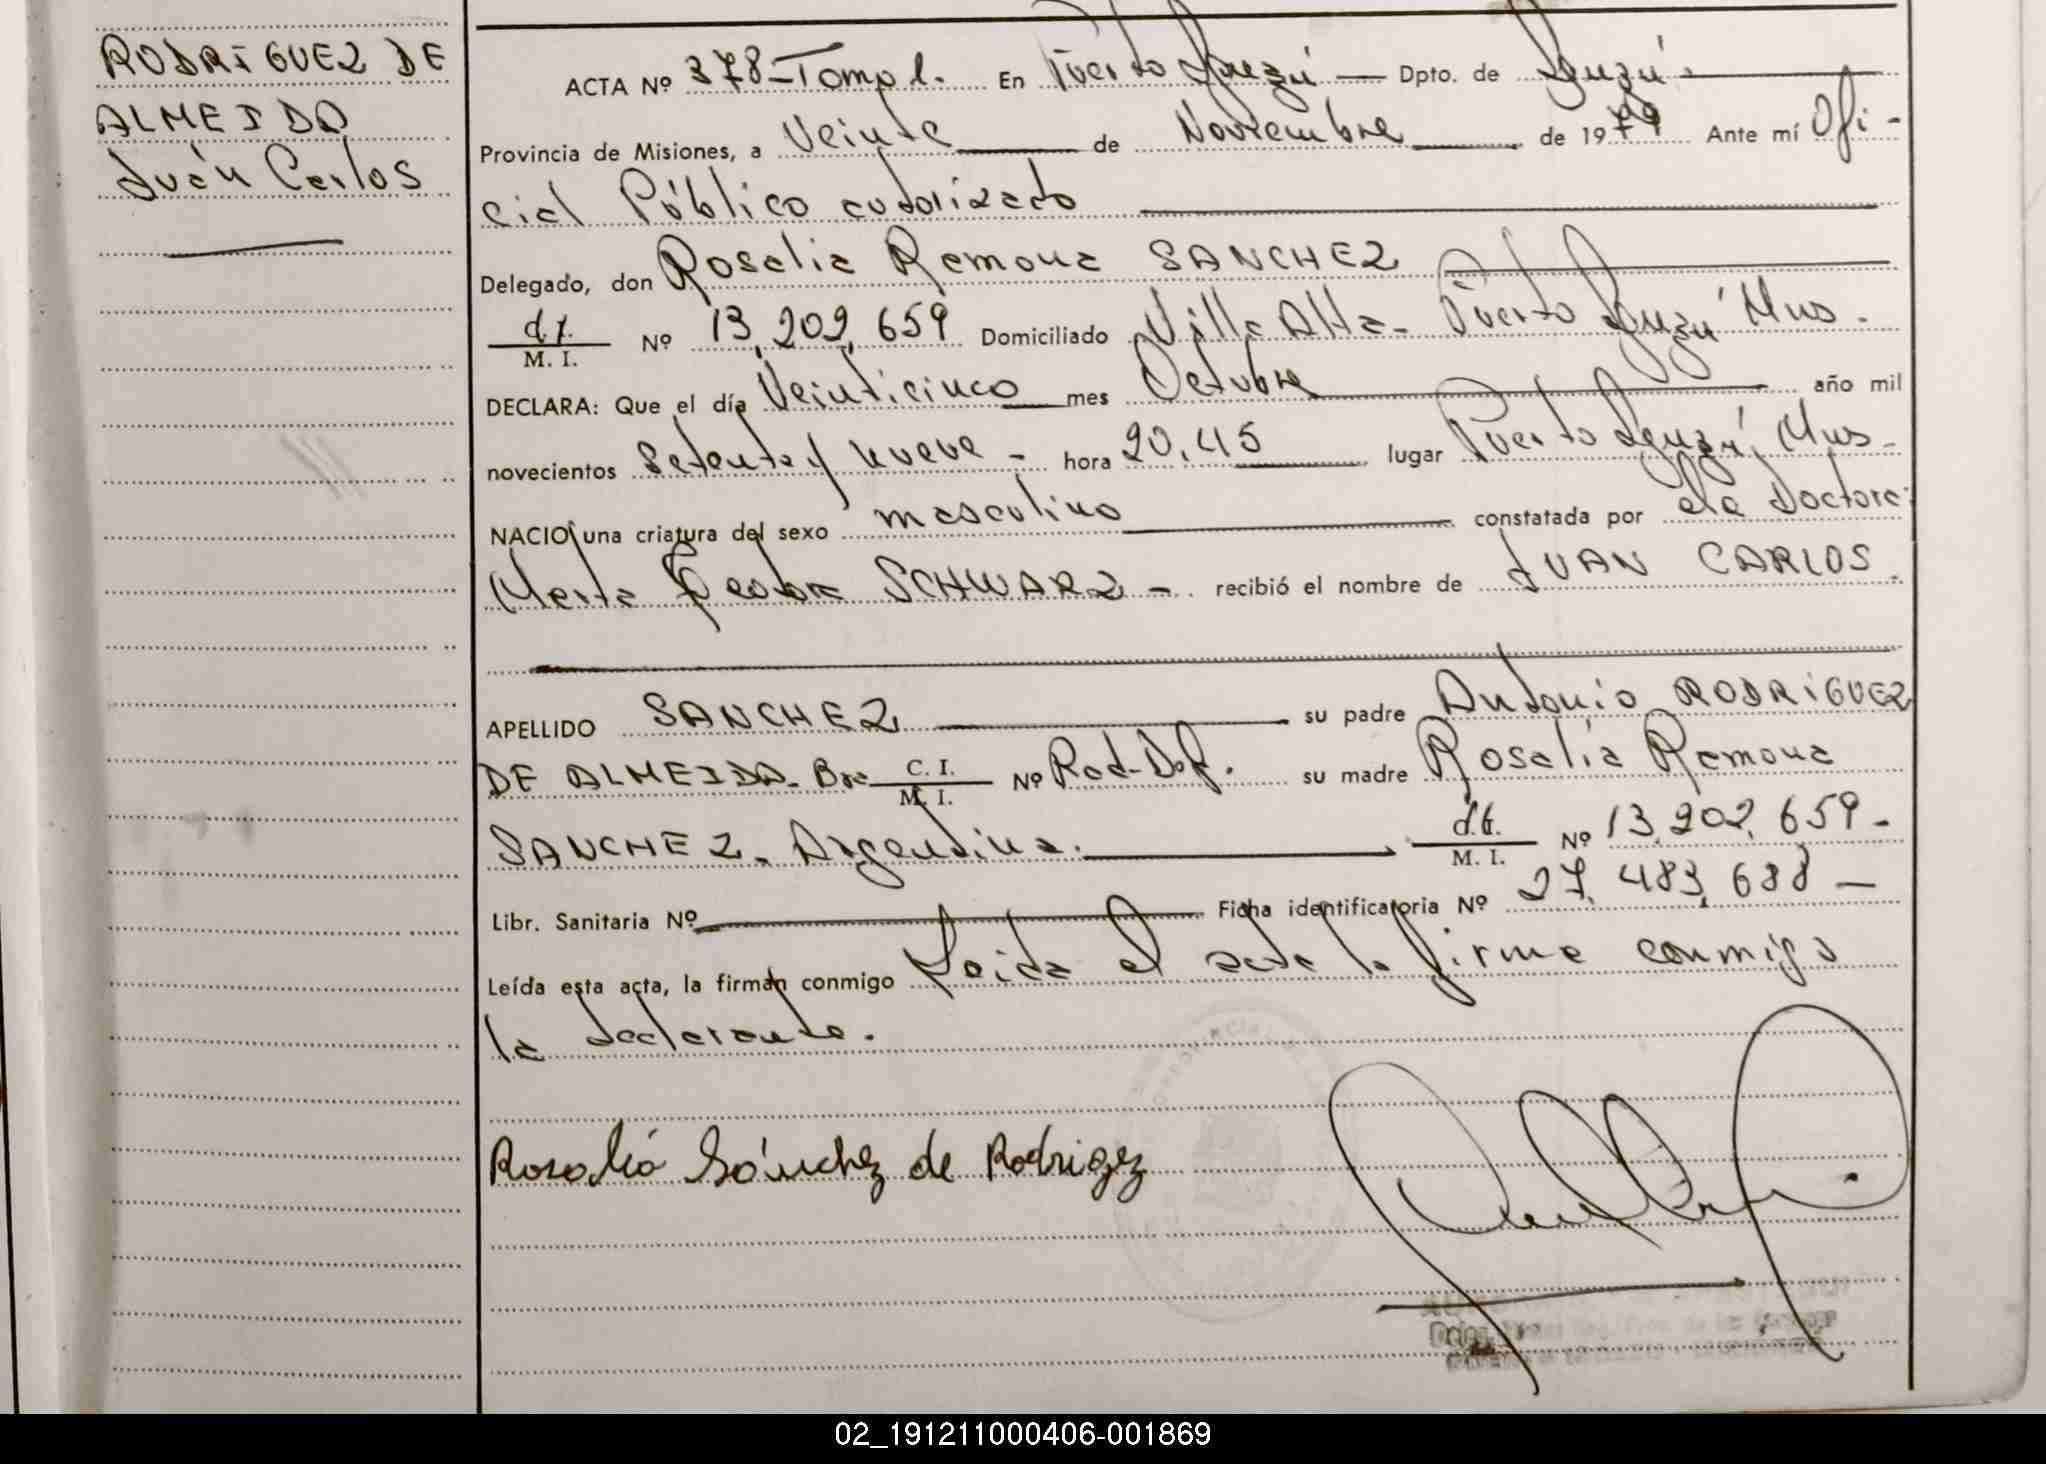 RODRIGUEZ DE
ALMEIDA
Juan Carlos
ACTA Nº 378-Tomo 1. En Puerto Iguazú Dpto. de Iguazú.
Provincia de Misiones, a Veinte de Noviembre de 1979 Ante mí Ofi-
cial Público autorizado
Delegado, don Rosalia Ramona SANCHEZ
M. I. Nº 13,202,659 Domiciliado Villa Alta- Puerto Iguazú Mns.
DECLARA: Que el día Veinticinco mes Octubre año mil
novecientos setenta y nueve - hora 20,45 lugar Puerto Iguazú, Mns-
NACIO una criatura del sexo masculino constatada por la Doctora:
Marta SCHWARZ - recibió el nombre de JUAN CARLOS.
APELLIDO SANCHEZ su padre Antonio RODRIGUEZ
DE ALMEIDA- Bra C. I. M. I. Nº su madre Rosalia Ramona
SANCHEZ- Argentina. M. I. Nº 13,202,659-
Libr. Sanitaria Nº Ficha identificatoria Nº 27,483,688-
Leída esta acta, la firman conmigo Leida el acta la firma conmigo
la declarante.
Rosalia Sánchez de Rodrigez
02_191211000406-001869